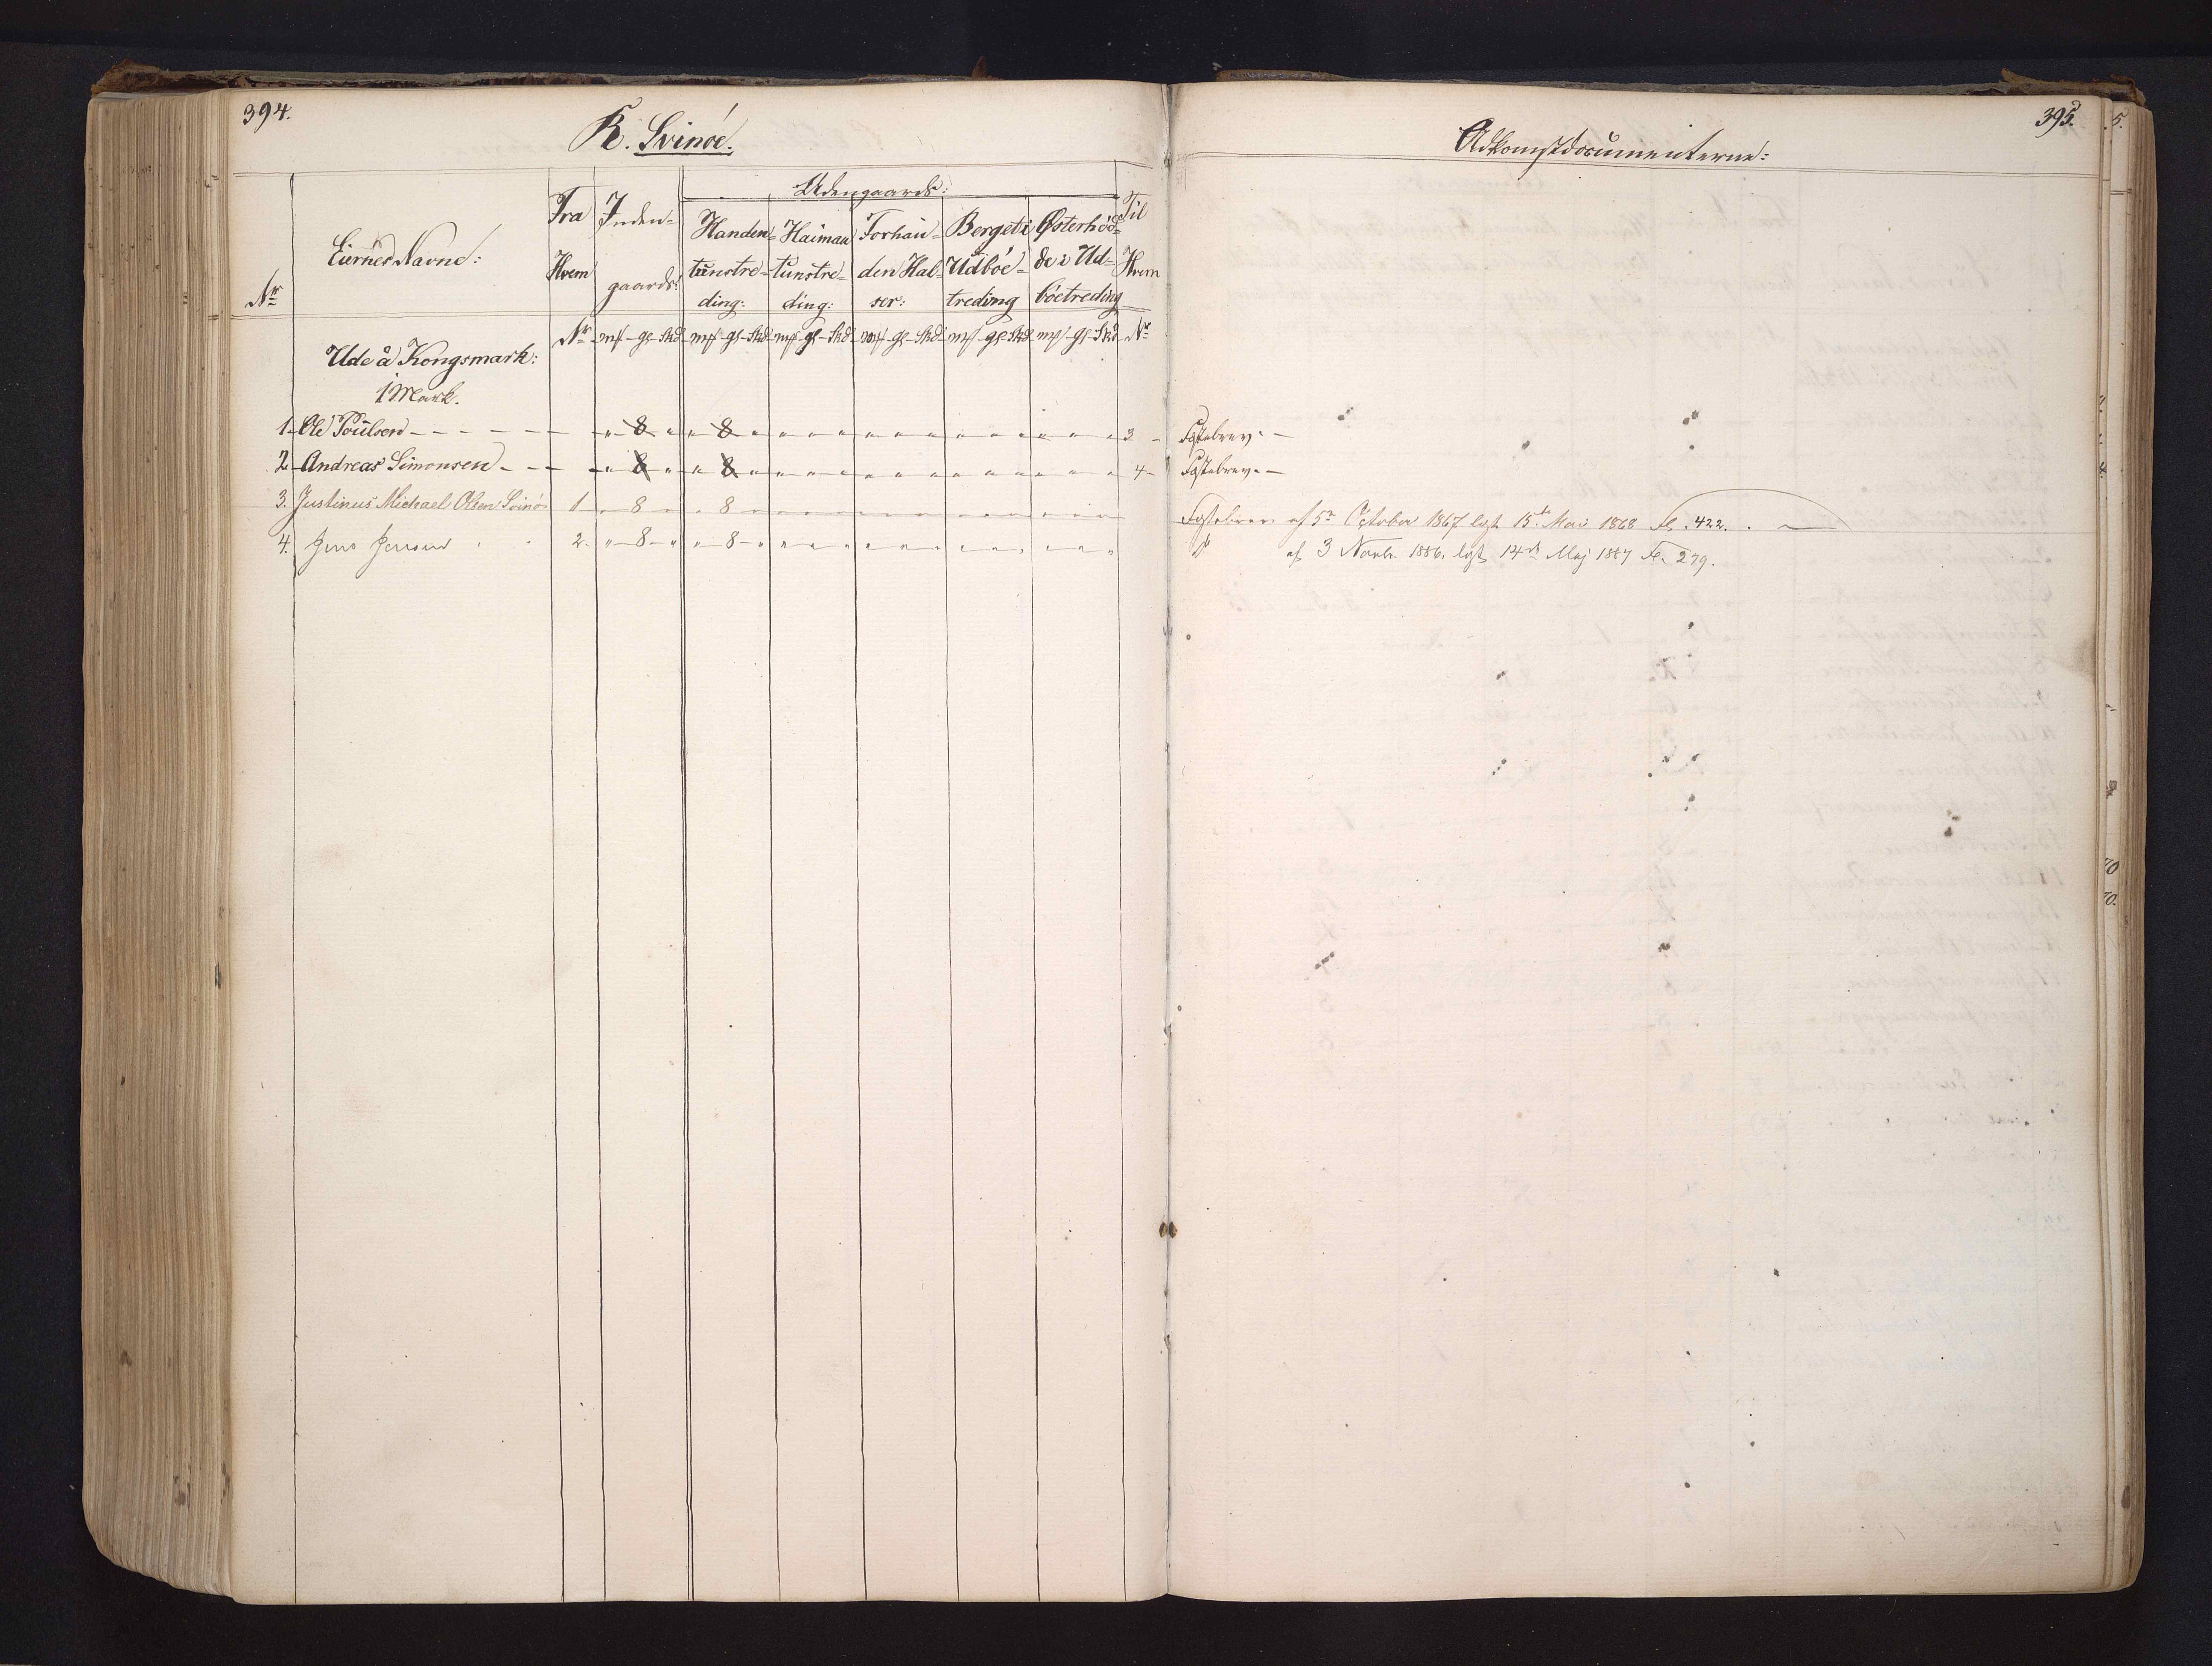 394.
K. Svinöe.
Udengaards:
Nr
Eiernes Navne:
Fra Hvem
Inden-
gaards:
Handen-
tunstre-
ding:
Haiman
tunstre-
ding:
Forhau-
den Hal-
ser:
Bergeti
Udböe-
treding
Østerhöd-
de i Ud-
böetreding
Til
Hvem
Nr mk - gl - Skd mk - gl - Skd mk - gl - Skd mk - gl - Skd mk - gl Skd mk - gl - Skd Nr
Ude å Kongsmark:
1 Mark.
1. Ole Poulsen - - - - " 8 " " 8 " " " " " " " " " " " " " 3
2. Andreas Simonsen - - " 8 " " 8 " " " " " " " " " " " " " 4
3. Justinus Michael Olsen Svinö 1 " 8 " " 8 " " " " " " " " " " " " "
4. Jens Jensen 2. " 8 " " 8 " " " " " " " " " " " " "
395.
Adkomstdocumenterne:
Fæstebrev. -
Fæstebrev. -
Fæstebrev af 5te October 1867 lyst 15de Mai 1868 Fol. 422.
do af 3 Novbr. 1886, lyst 14de Maj 1887 Fol. 279.